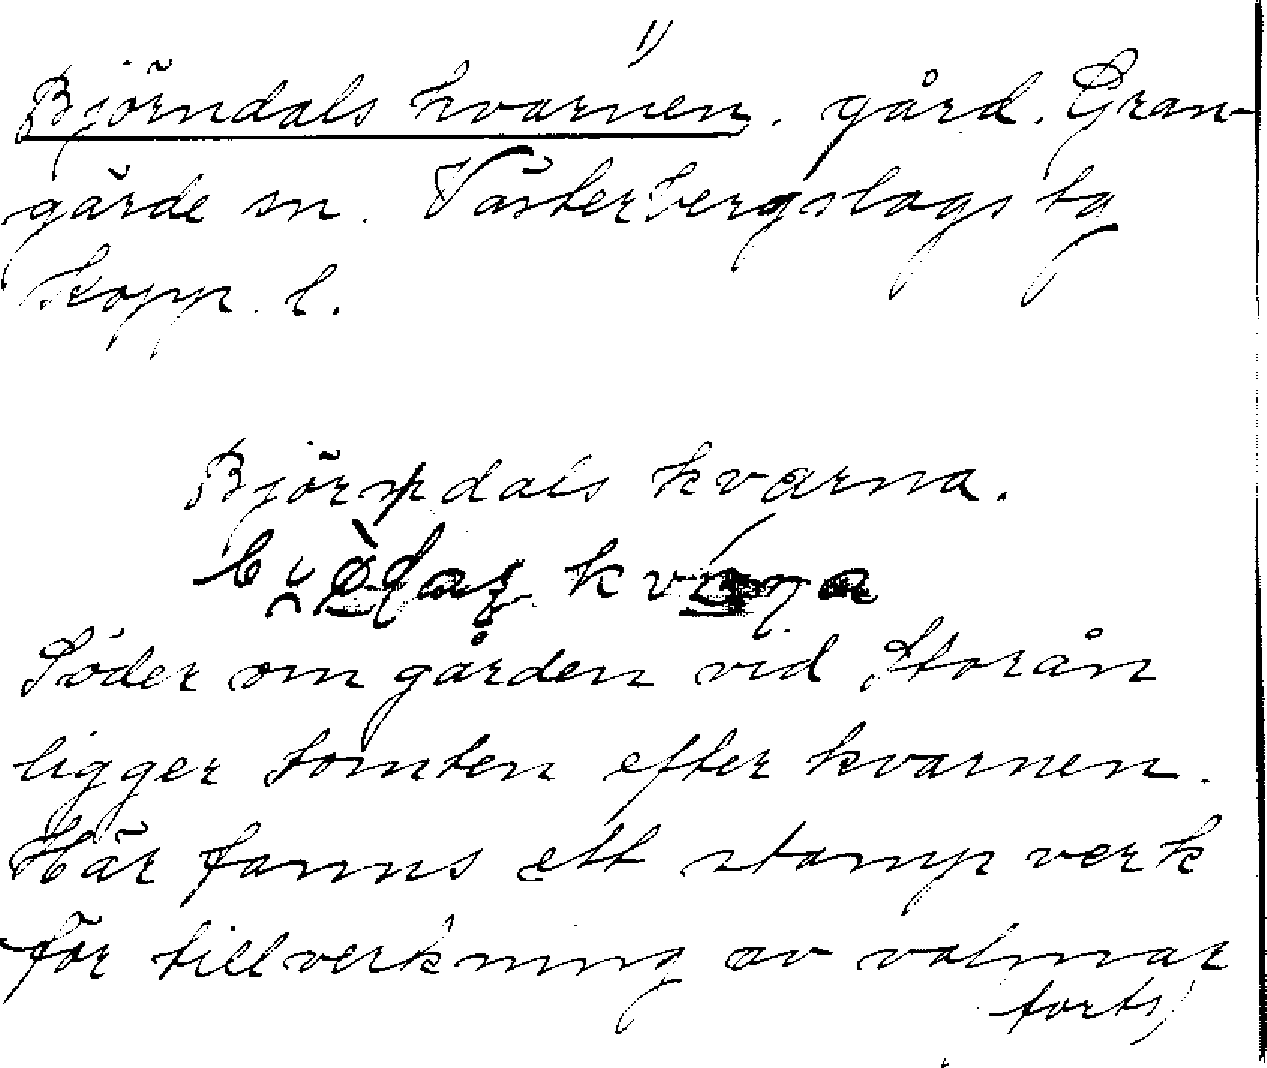 1)
Björndals kvarnen. gård. Gran-
gärde sn. Västerbergslags tg
Kopp. l.
Björndals kvarna.
Söder om gården vid Storån
ligger tomten efter kvarnen.
Här fanns ett stampverk
för tillverkning av valmar
forts)